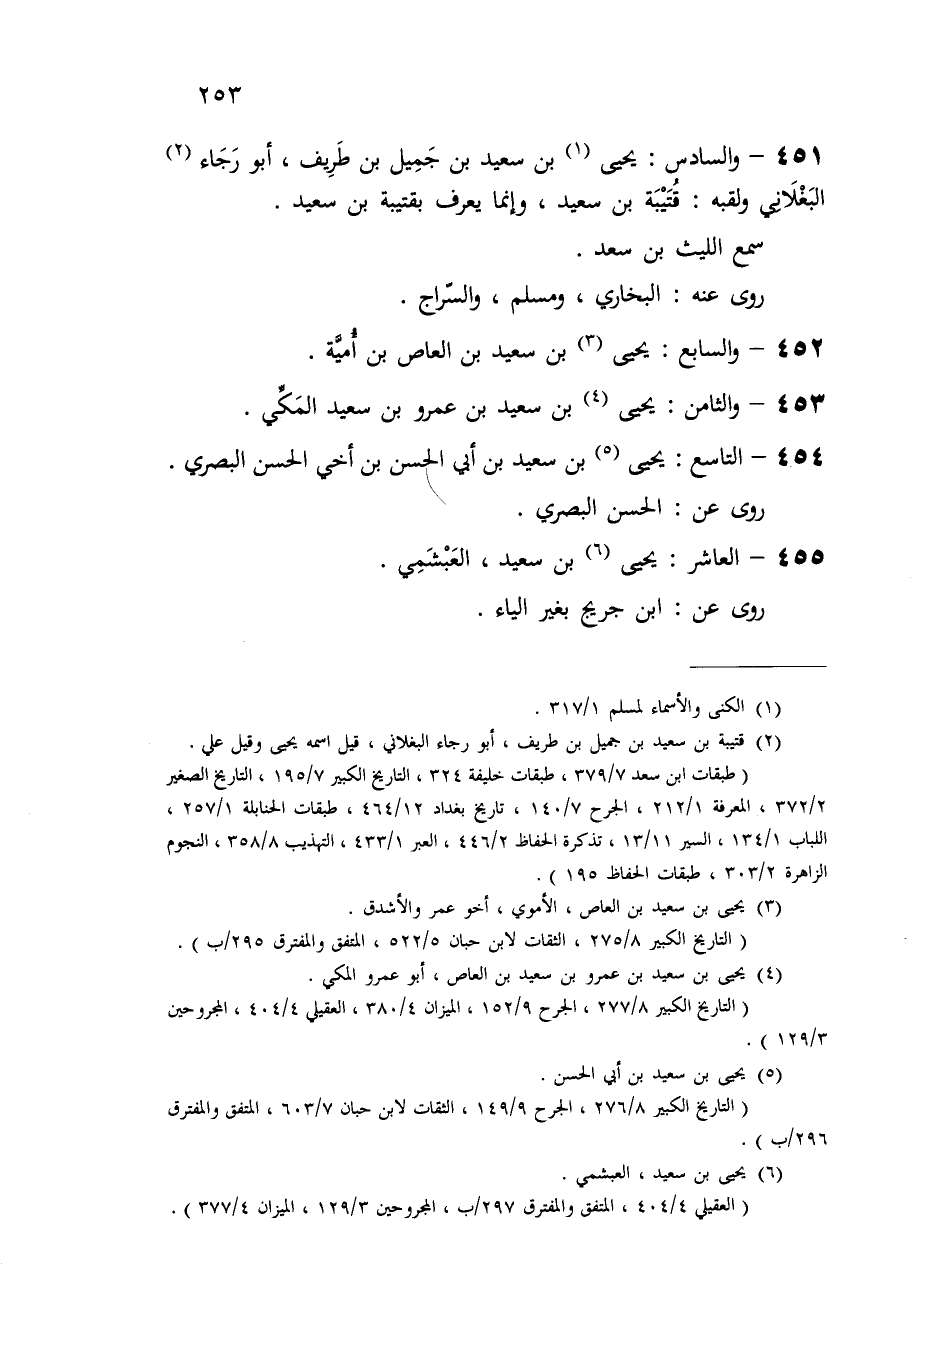 ٢٥٣
٤٥١ – والسادس : يحيى (١) بن سعيد بن جَمِيل بن طَرِيف ، أبو رَجَاء (٢)
البَغْلَاني ولقبه : قُتَيْبَة بن سعيد ، وإنما يعرف بقتيبة بن سعيد .
سمع الليث بن سعد .
روى عنه : البخاري ، ومسلم ، والسّراج .
٤٥٢ – والسابع : يحيى (٣) بن سعيد بن العاص بن أُميَّة .
٤٥٣ – والثامن : يحيى (٤) بن سعيد بن عمرو بن سعيد المَكِّي .
٤٥٤ – التاسع : يحيى (٥) بن سعيد بن أبي الحسن بن أخي الحسن البصري .
روى عن : الحسن البصري .
٤٥٥ – العاشر : يحيى (٦) بن سعيد ، العَبْشَمِي .
روى عن : ابن جريج بغير الياء .
(١) الكنى والأسماء لمسلم ٣١٧/١ .
(٢) قتيبة بن سعيد بن جميل بن طريف ، أبو رجاء البغلاني ، قيل اسمه يحيى وقيل علي .
( طبقات ابن سعد ٣٧٩/٧ ، طبقات خليفة ٣٢٤ ، التاريخ الكبير ١٩٥/٧ ، التاريخ الصغير
٣٧٢/٢ ، المعرفة ٢١٢/١ ، الجرح ١٤٠/٧ ، تاريخ بغداد ٤٦٤/١٢ ، طبقات الحنابلة ٢٥٧/١ ،
اللباب ١٣٤/١ ، السير ١٣/١١ ، تذكرة الحفاظ ٤٤٦/٢ ، العبر ٤٣٣/١ ، التهذيب ٣٥٨/٨ ، النجوم
الزاهرة ٣٠٣/٢ ، طبقات الحفاظ ١٩٥ ) .
(٣) يحيى بن سعيد بن العاص ، الأموي ، أخو عمر والأشدق .
( التاريخ الكبير ٢٧٥/٨ ، الثقات لابن حبان ٥٢٢/٥ ، المتفق والمفترق ٢٩٥/ب ) .
(٤) يحيى بن سعيد بن عمرو بن سعيد بن العاص ، أبو عمرو المكي .
( التاريخ الكبير ٢٧٧/٨ ، الجرح ١٥٢/٩ ، الميزان ٣٨٠/٤ ، العقيلي ٤٠٤/٤ ، المجروحين
١٢٩/٣ ) .
(٥) يحيى بن سعيد بن أبي الحسن .
( التاريخ الكبير ٢٧٦/٨ ، الجرح ١٤٩/٩ ، الثقات لابن حبان ٦٠٣/٧ ، المتفق والمفترق
٢٩٦/ب ) .
(٦) يحيى بن سعيد ، العبشمي .
( العقيلي ٤٠٤/٤ ، المتفق والمفترق ٢٩٧/ب ، المجروحين ١٢٩/٣ ، الميزان ٣٧٧/٤ ) .